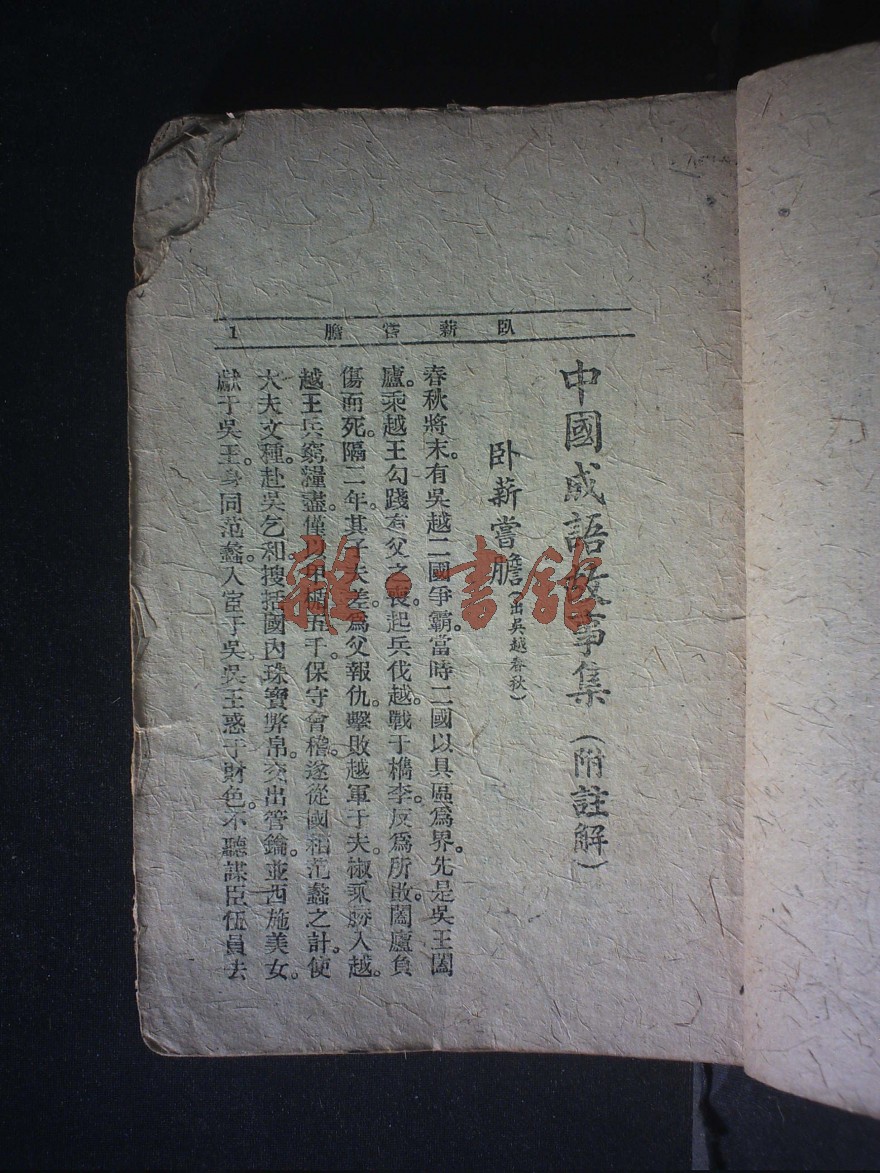 臥薪嘗膽
1
中國成語故事集（附註解）
卧薪嘗膽（出吳越春秋）
春秋將末。有吳越二國爭霸。當時二國以具區爲界。先是吳王闔
廬。乘越王勾踐有父之喪。起兵伐越。戰于檇李。反爲所敗。闔廬負
傷而死。隔二年。其子夫差。爲父報仇。擊敗越軍于夫椒。乘勝入越。
越王兵窮糧盡。僅以甲楯五千。保守會稽。遂從國相范蠡之計。使
大夫文種。赴吳乞和。搜括國內珠寶幣帛。交出管鑰。並西施美女。
獻于吳王。身同范蠡。入宦于吳。吳王惑于財色。不聽謀臣伍員去
雜·書館